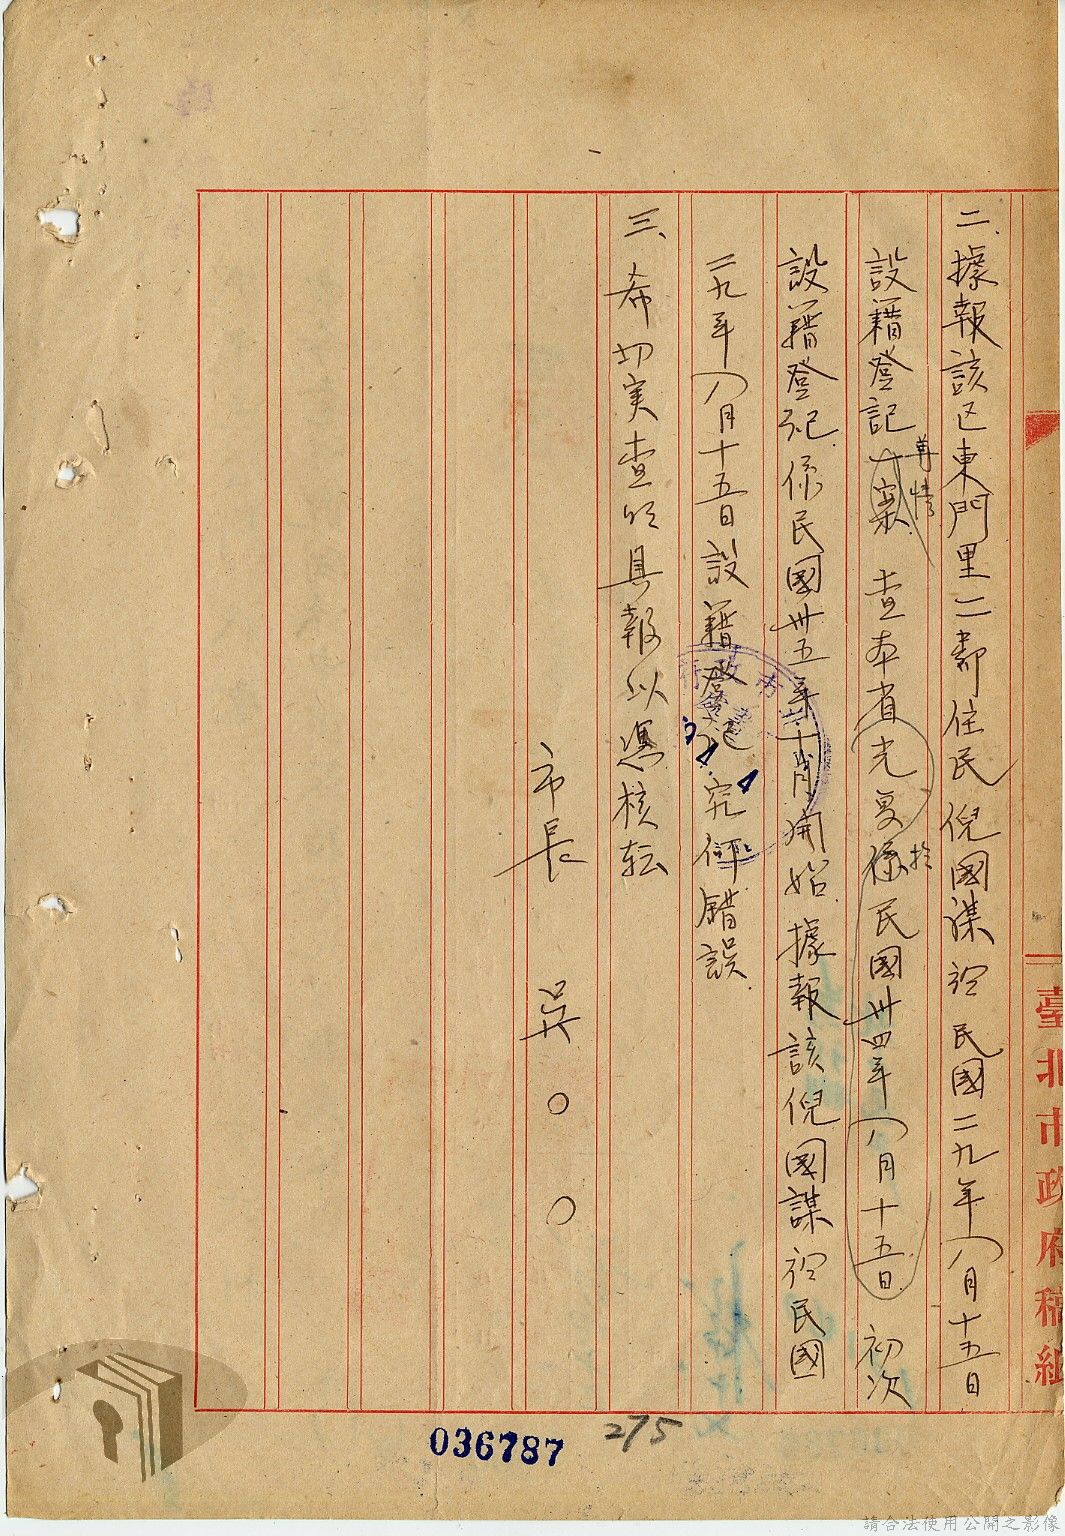 二、據報該区東門里二鄰住民倪國謀於民國二九年八月十五日
設籍登記一案 等情 查本省光复係於民國卅四年八月十五日初次
設籍登記係民國卅五年十月開始據報該倪國謀於民國
二九年八月十五日設籍登記究何錯誤
三、希切实查明具報以憑核転
市長 吳○○
臺北市政府稿紙
036787
275
請合法使用公開之影像